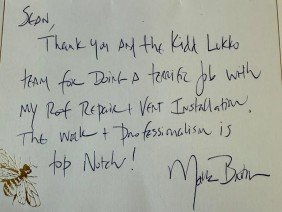 Sean,
Thank you and the Kidd Lukko
team for doing a terrific job with
my Roof Repair + Vent Installation.
The work + Professionalism is
top Notch!